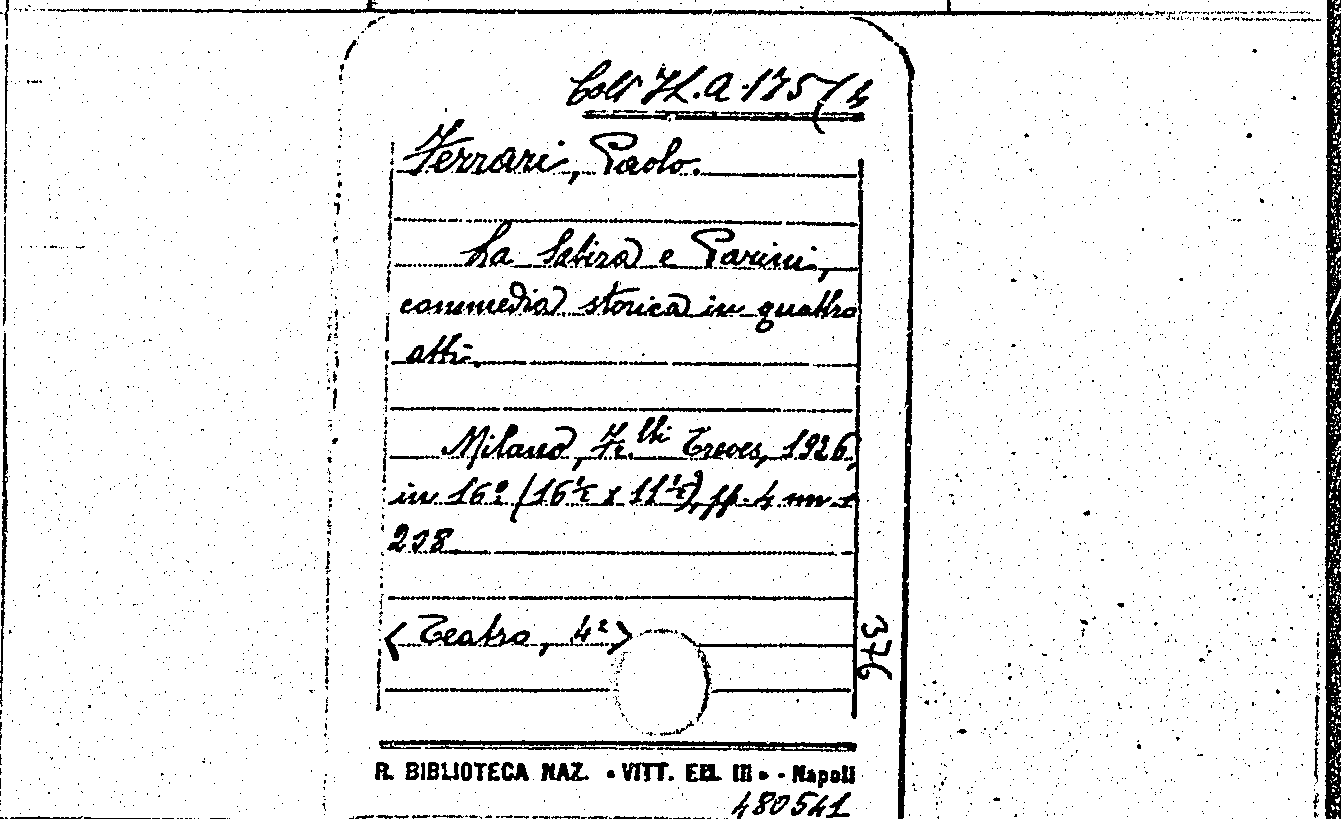 Coll It. A. 175 (4
Ferrari, Paolo.
La Satira e Parini,
commedia storica in quattro
atti.
Milano, Fr.lli Treves, 1926,
in 16º (16½ x 11½), pp. 4 nn. +
238
<Teatro, 4º>
376
R. BIBLIOTECA NAZ. • VITT. EM. III • - Napoli
480541